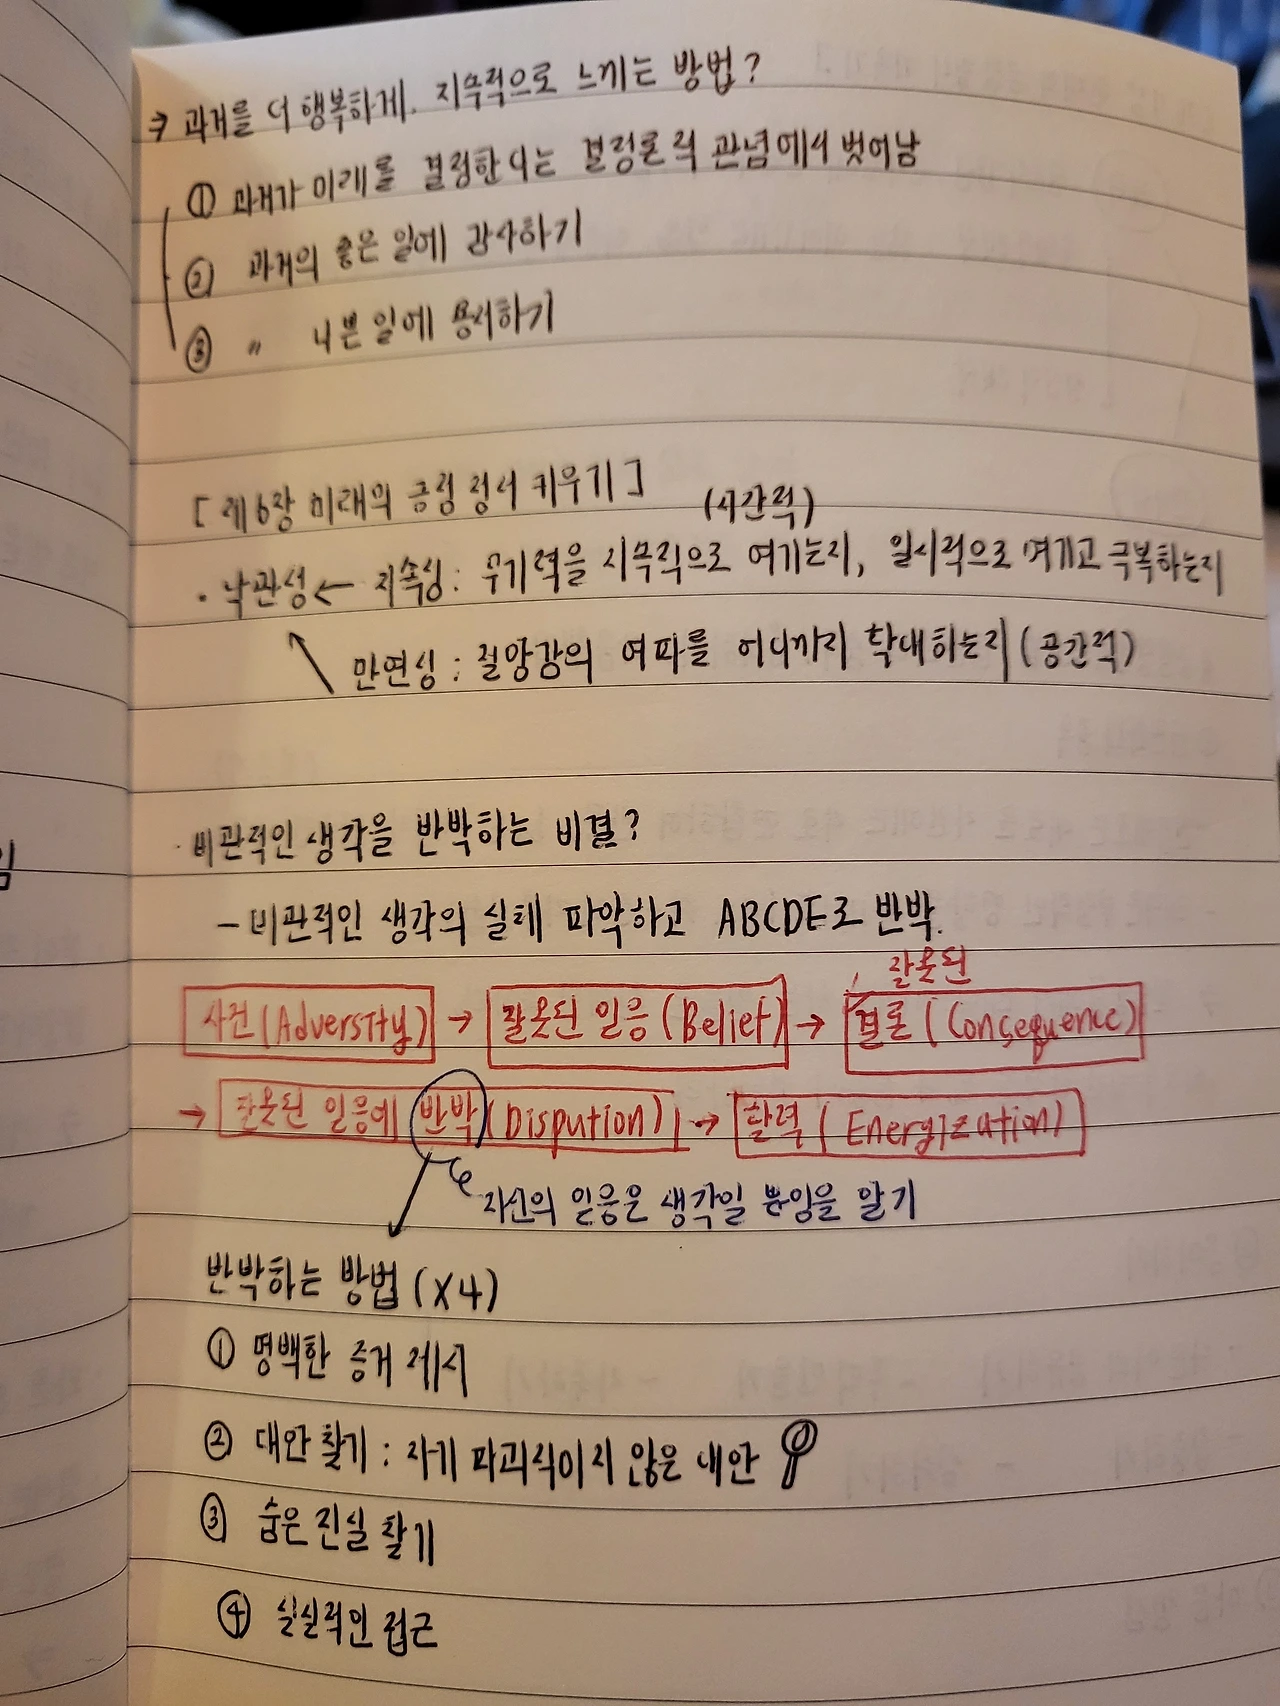 → 과거를 더 행복하게. 지속적으로 느끼는 방법?
① 과거가 미래를 결정한다는 결정론적 관념에서 벗어남
② 과거의 좋은 일에 감사하기
③ 〃 나쁜 일에 용서하기
[제6장 미래의 긍정 정서 키우기]
(시간적)
· 낙관성 ← 지속성 : 무기력을 영속적으로 여기는지, 일시적으로 여기고 극복하는지
만연성 : 절망감의 여파를 어디까지 확대하는지 (공간적)
· 비관적인 생각을 반박하는 비결?
- 비관적인 생각의 실체 파악하고 ABCDE로 반박.
잘못된
사건(Adversity) → 잘못된 믿음(Belief) → 결론(Consequence)
→ 잘못된 믿음에 반박(Dispution) → 활력(Energization)
자신의 믿음은 생각일 뿐임을 알기
반박하는 방법(X4)
① 명백한 증거 제시
② 대안 찾기 : 자기 파괴적이지 않은 대안
③ 숨은 진실 찾기
④ 실실적인 접근
임